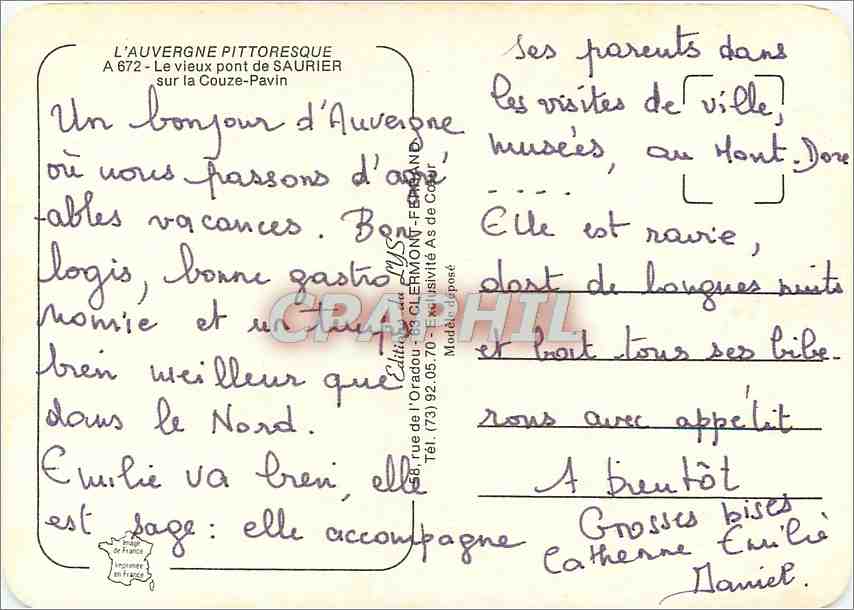 L'AUVERGNE PITTORESQUE
A 672 - Le vieux pont de SAURIER
sur la Couze-Pavin
Un bonjour d'Auvergne
où nous passons d'agré
-ables vacances. Bon
logis, bonne gastro
nomie et un temps
bien meilleur que
dans le Nord.
Emilie va bien, elle
est sage : elle accompagne
ses parents dans
les visites de ville,
musées, au Mont-Dore
- - - -
Elle est ravie,
dort de longues nuits
et boit tous ses bibe-
rons avec appétit
A bientôt
Grosses bises
Catherine Emilie
Daniel.
Editions du LYS
58, rue de l'Oradou - 63 CLERMONT-FERRAND
Tél. (73) 92.05.70 - Exclusivité As de Cœur
Modèle déposé
Image
de France
Imprimée
en France
CRAPHIL